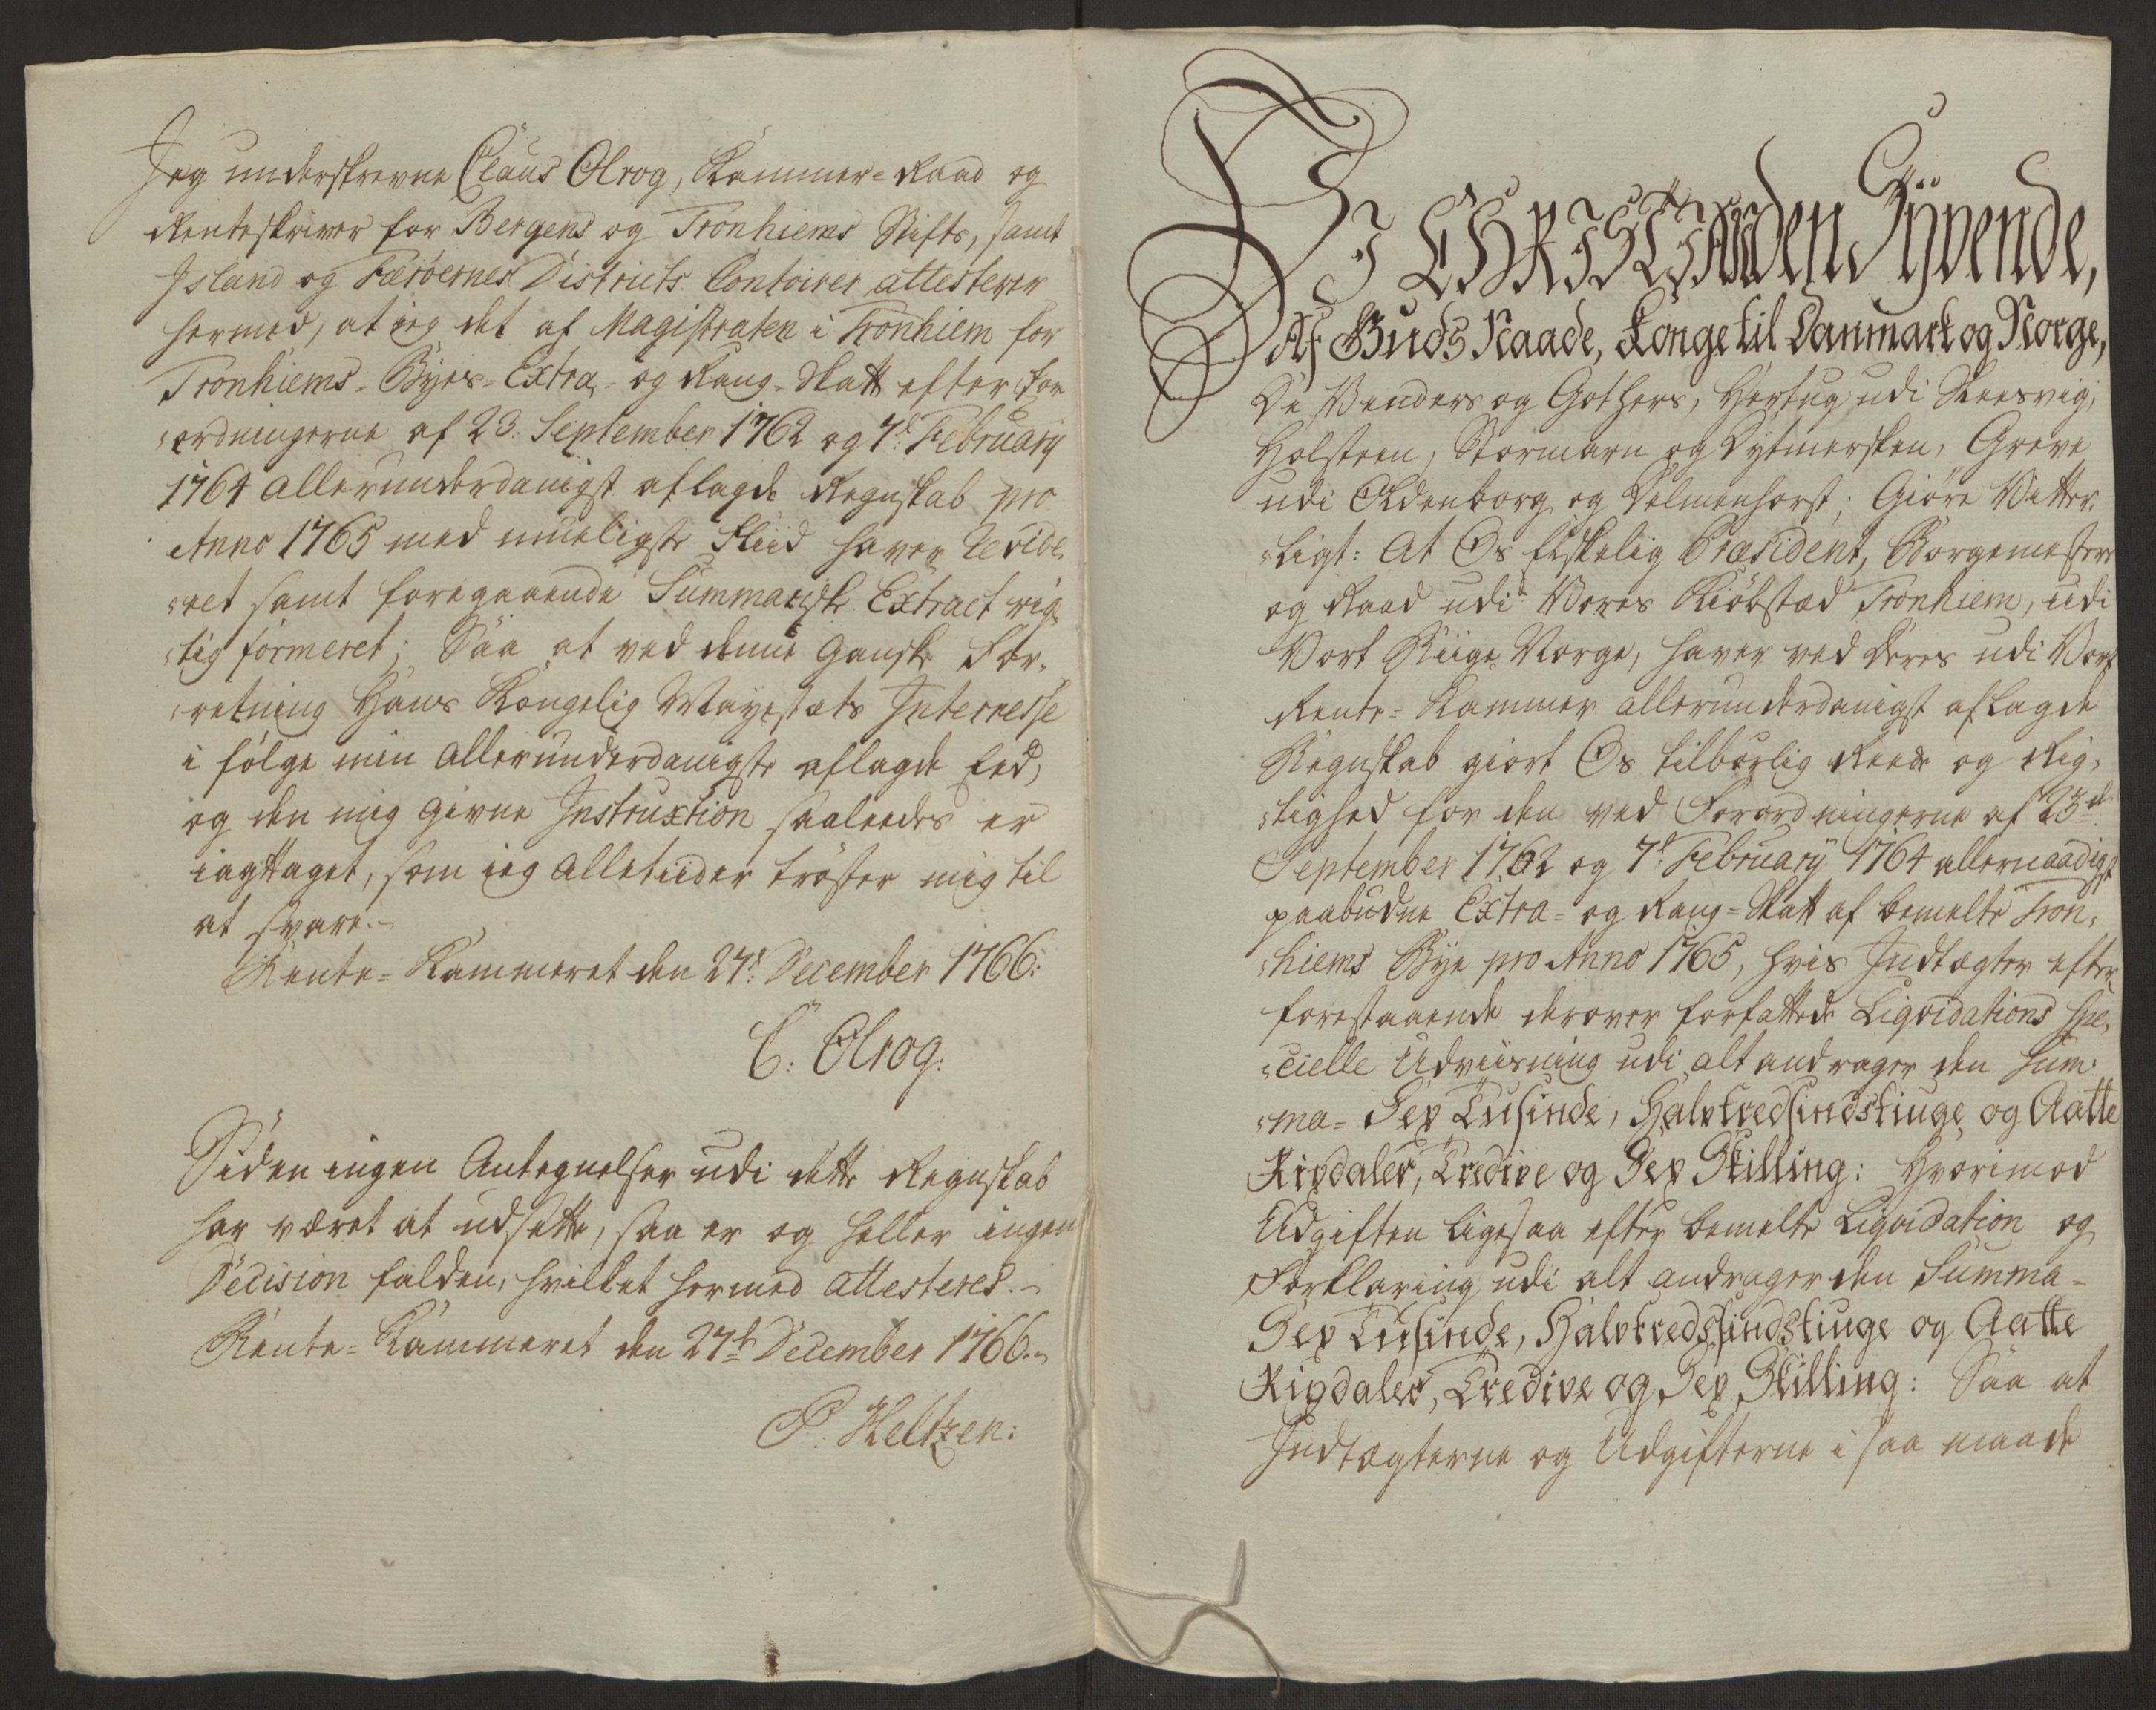 Jeg underskrevne Claus Olrog, Kammer-Raad og
Renteskriver for Bergens og Tronhiems Stifts, samt
Island og Færöernes Districts Contoirer attesterer
hermed, at jeg det af Magistraten i Tronhiem for
Tronhiems-Byes-Extra- og Rang-Skatt efter For-
-ordningerne af 23. September 1762 og 7d. February
1764 allerunderdanigst aflagde Regnskab pro
Anno 1765 med mueligste Fliid haver Revide-
-ret samt foregaaende Summariske Extract rig-
-tig formeret; Saa at ved denne gandske For-
-retning Hans Kongelig Mayestets Interresse
i følge min allerunderdanigste aflagde Eed,
og den mig givne Instruxtion saaleedes er
iagttaget, som jeg alletiider tröster mig til
at svare.-
Rente-Kammeret den 27d. December 1766.
C. Olrog.
Siden ingen Antegnelser udi dette Regnskab
har været at udsette, saa er og heller ingen
Decision falden, hvilket hermed attesteres.-
Rente-Kammeret den 27de December 1766.
P. Heltzen.
Vi CHRISTIAN den Syvende,
Af Guds Naade, Konge til Danmark og Norge,
De Venders og Gothers, Hertug udi Sleesvig,
Holsteen, Stormarn og Dytmersken, Greve
udi Oldenborg og Delmenhorst; Giöre Vitter-
-ligt: At Os Elskelig Præsident, Borgemestere
og Raad udi Vores Kiöbstæd Tronhiem, udi
Vort Riige Norge, haver ved Deres udi Vort
Rente-Kammer allerunderdanigst aflagde
Regnskab giort Os tilbørlig Reede og Rig-
-tighed for den ved Forordningerne af 23de
September 1762 og 7d. February 1764 allernaadigst
paabudne Extra- og Rang-Skatt af bemelte Tron-
-hiems Bye pro Anno 1765, hvis Indtægter efter
forestaaende derover forfattede Liqvidations Spe-
-cielle Udviisning udi alt andrager den Sum-
-ma- Sex Tusinde, Halvtredsindstiuge og Aatte
Rixdaler, Tredive og Sex Skilling: Hvorimod
Udgiften ligesaa efter bemelte Liqvidation og
Forklaring udi alt andrager den Summa-
Sex Tusinde, Halvtredssindstiuge og Aatte
Rixdaler, Tredive og Sex Skilling: Saa at
Indtægterne og Udgifterne i saa maade